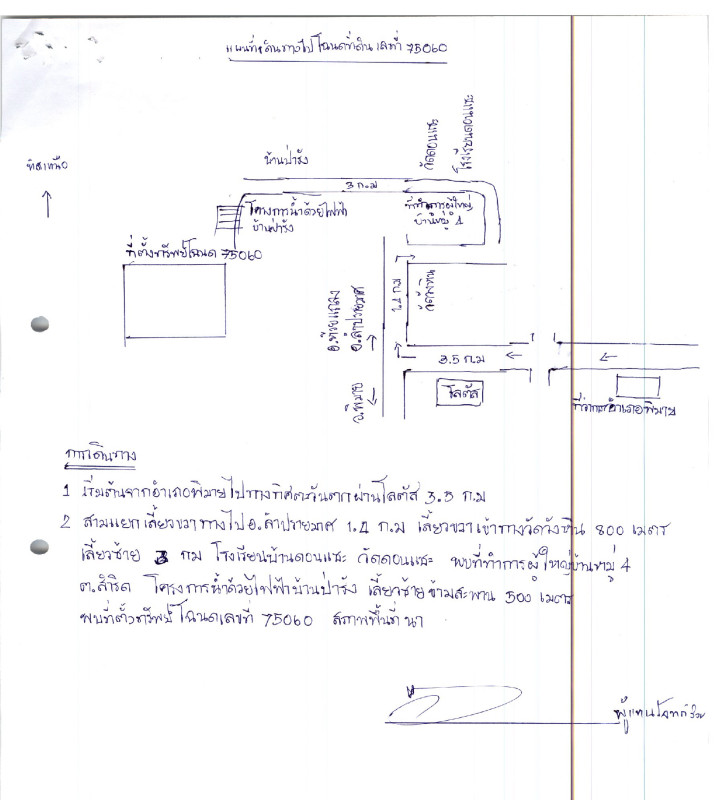 แผนที่เดินทางไป โฉนดที่ดิน เลขที่ 75060
วัดดอนแซะ
โรงเรียนดอนแซะ
บ้านปารัง
ทิศเหนือ
3 ก.ม
โครงการน้ำด้วยไฟฟ้า
บ้านปารัง
ที่ทำการผู้ใหญ่
บ้านหมู่ 4
ที่ตั้งทรัพย์โฉนด 75060
อ.ห้วยแถลง
อ.ลำปลายมาศ
1.4 ก.ม
วัดวังหิน
3.5 ก.ม
อ.พิมาย
โลตัส
ที่ว่าการอำเภอพิมาย
การเดินทาง
1 เริ่มต้นจากอำเภอพิมายไปทางทิศตะวันตกผ่านโลตัส 3.5 ก.ม
2 สามแยกเลี้ยวขวาทางไป อ.ลำปลายมาศ 1.4 ก.ม เลี้ยวขวาเข้าทางวัดวังหิน 800 เมตร
เลี้ยวซ้าย 3 กม โรงเรียนบ้านดอนแซะ วัดดอนแซะ พบที่ทำการผู้ใหญ่บ้านหมู่ 4
ต.สำริด โครงการน้ำด้วยไฟฟ้าบ้านปารัง เลี้ยวซ้ายข้ามสะพาน 500 เมตร
พบที่ตั้งทรัพย์ โฉนดเลขที่ 75060 สภาพพื้นที่ นา
ผู้แทนโจทก์